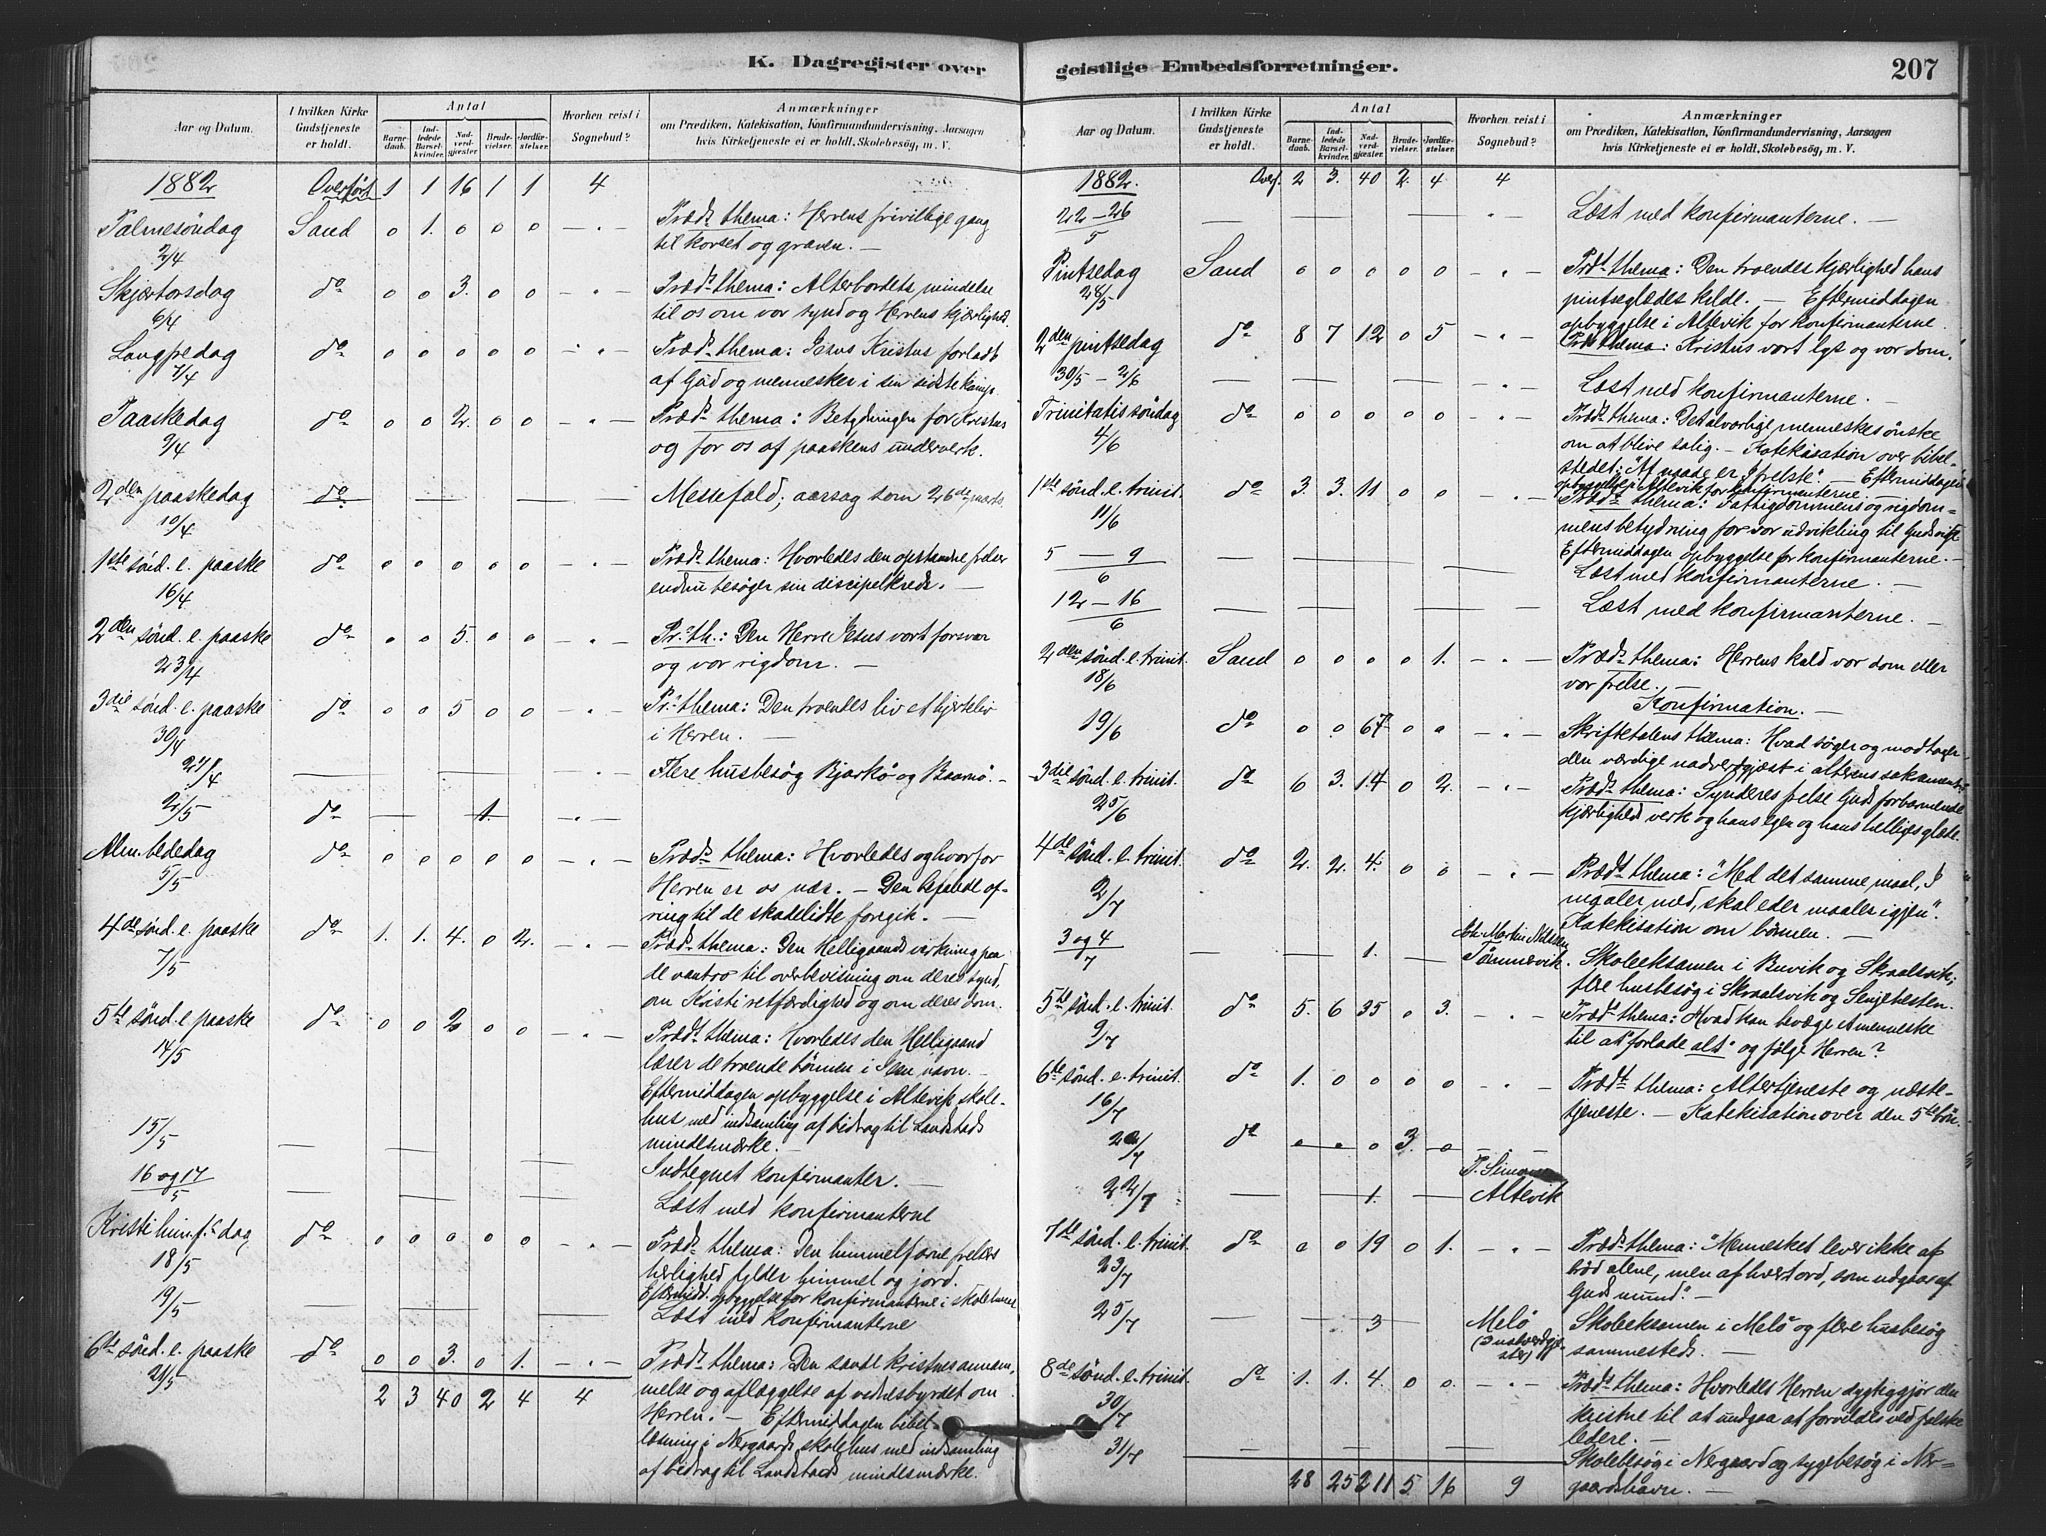 K. Dagregister over
Aar og Datum.
I hvilken Kirke Gudstjeneste er holdt.
Antal
Barnedaab.
Indledede Barselkvinder.
Nadverdgjæster.
Brudevielser.
Jordfæstelser.
Hvorhen reist i Sognebud?
Anmærkninger
om Prædiken, Katekisation, Konfirmandundervisning, Aarsagen
hvis Kirketjeneste ei er holdt, Skolebesøg, m. V.
1882 Overført 1 1 16 1 1 4
Palmesøndag Sand 0 1. 0 0 0 - " - Præd.s thema: Herrens frivillige gang
2/4 til korset og graven. —
Skjærtorsdag do 0 0 3. 0 0 - " - Præd.s thema: Alterbordets mindelse
6/4 til os om vor synd og Herrens kjærlighed.
Langfredag do 0 0 0 0 0 - " - Præd.s thema: Jesus Kristus forladt
7/4 af Gud og mennesker i sin sidste kamp.
Paaskedag do 0 0 2. 0 0 - " - Præd.s thema: Betydningen for Kristus
9/4 og for os af paaskens underverk.
2den paaskedag do — — — — Messefald; aarsag som 26de marts.
10/4
1ste sønd. e. paaske do 0 0 0 0 0 - " - Præd.s thema: Hvorledes den opstandne frelser
16/4 endnu besøger sin discipelkreds. —
2den sønd. e. paaske do 0 0 5. 0 0 - " - Pr.s th.: Den Herre Jesus vort forsvar
23/4 og vor rigdom. —
3die sønd. e. paaske do 0 0 5 0 0 - " - Pr.s thema: Den troendes liv et hjerteliv
30/4 i Herren. —
/4 — — — — Flere husbesøg Bjarkø og . —
2/5 do — 1. — - " -
Alm. bededag do 0 0 0 0 0 - " - Præd.s thema: Hvorledes og hvorfor
5/5 Herren er os nær. — Den befalede of-
ring til de skadelidte foregik. —
4de sønd. e. paaske do 1. 1. 4. 0 2. - " - Præd.s thema: Den Helligaands virkning paa
7/5 de vantro til overbevisning om deres synd,
om Kristi retfærdighed og om deres dom.
5te sønd. e. paaske do 0 0 2 0 0 - " - Præd.s thema: Hvorledes den Helligaand
14/5 lærer de troende bønnen i Jesu navn. —
Eftermiddagen opbyggelse i Altevik skole-
hus med indsamling af bidrag til Landstads
mindesmærke. —
15/5 — — — Indtegnet konfirmanter. —
16 og 17/5 — — — Læst med konfirmanterne
Kristi himf.s dag do 0 0 0 0 0 - " - Præd.s thema: Den himmelfarne frelsers
18/5 herlighed fylder himmel og jord.
Eftermidd. opbyggelse for konfirmanterne i skolehuset
19/5 — — — Læst med konfirmanterne
6te sønd. e. paaske do 0 0 3. 0 1. - " - Præd.s thema: Den sande kristnes annam-
21/5 melse og aflæggelse af vidnesbyrdet om
2 3 40 2 4 4 Herren. — Eftermiddagen bibel-
læsning i Nergaards skolehus med indsamling
af bidrag til Landstads mindesmærke.
geistlige Embedsforretninger. 207
Aar og Datum.
I hvilken Kirke Gudstjeneste er holdt.
Antal
Barnedaab.
Indledede Barselkvinder.
Nadverdgjæster.
Brudevielser.
Jordfæstelser.
Hvorhen reist i Sognebud?
Anmærkninger
om Prædiken, Katekisation, Konfirmandundervisning, Aarsagen
hvis Kirketjeneste ei er holdt, Skolebesøg, m. V.
1882. Overf. 2 3. 40 2. 4 4
22-26/5 — — — — - " - Læst med konfirmanterne. —
Pintsedag Sand 0 0 0 0 0 - " - Præd.s thema: Den troendes kjærlighed hans
28/5 pintseglædes kilde. — Eftermiddagen
opbyggelse i Altevik for konfirmanterne.
2den pintsedag do 8 7 12 0 5 - " - Præd.s thema: Kristus vort lys og vor dom.
30/5 - 2/6 — — — — - " - Læst med konfirmanterne. —
Trinitatis søndag do 0 0 0 0 0 - " - Præd.s thema: Det alvorlige menneskes ønske
4/6 om at blive salig. — Katekisation over bibel-
stedet: "Af naade er I frelste". — Eftermiddagen
opbyggelse i Altevik for konfirmanterne. —
1ste sønd. e. trinit. do 3. 3. 11 0 0 - " - Præd.s thema: Fattigdommens og rigdom-
11/6 mens betydning for vor udvikling til Guds rige
Eftermiddagen opbyggelse for konfirmanterne. —
5 — 9/6 — — — — Læst med konfirmanterne. —
12 — 16/6 — — — — Læst med konfirmanterne. —
2den sønd. e. trinit. Sand 0 0 0 0 1. - " - Præd.s thema: Herrens kald vor dom eller
18/6 vor frelse. —
Konfirmation. —
19/6 do 0 0 67 0 0 - " - Skriftetalens thema: Hvad søger og modtager
den værdige nadverdgjæst i alterens sakamente
3die sønd. e. trinit. do 6 3. 14 0 2. - " - Præd.s thema: Synderes frelse Guds forbarmende
25/6 kjærligheds verk og hans egen og hans helliges glæde.
4de sønd. e. trinit. do 2. 2. 4. 0 0 - " - Præd.s thema: "Med det samme maal, I
2/7 maaler med, skal eder maales igjen".
Katekisation om bønnen. —
3 og 4/7 — — 1. — Martin Nilsen Tømmervik. Skoleeksamen i Buvik og Skraalsvik;
flere husbesøg i Skraalsvik og Senjehesten.
5te sønd. e. trinit. do 5. 6 35 0 3. - " - Præd.s thema: Hvad kan bevæge et menneske
9/7 til at "forlade alt" og følge Herren?
6te sønd. e. trinit. do 1. 0 0 0 0 - " - Præd.s thema: Altertjeneste og næste-
16/7 tjeneste. — Katekisation over den 5te bøn.
20/7 do 0 0 0 3. 0 - " -
22/7 — — 1. — P. Altevik
7de sønd. e. trinit. do 0 0 19 0 1. - " - Præd.s thema: "Mennesket lever ikke af
23/7 brød alene, men af hvert ord, som udgaar af
Guds mund". —
25/7 — 3 — Melö (3 nadverdgjæster) Skoleeksamen i Melö og flere husbesøg
sammesteds. —
8de sønd. e. trinit. do 1. 1. 4. 0 0. - " - Præd.s thema: Hvorledes Herren dygtiggjør den
30/7 kristne til at undgaa at forvildes ved falske
lærere. —
31/7 — — — — Skolebesøg i Nergaard og sygebesøg i Ner-
28 25 211 5 16 9 gaardshavn. —